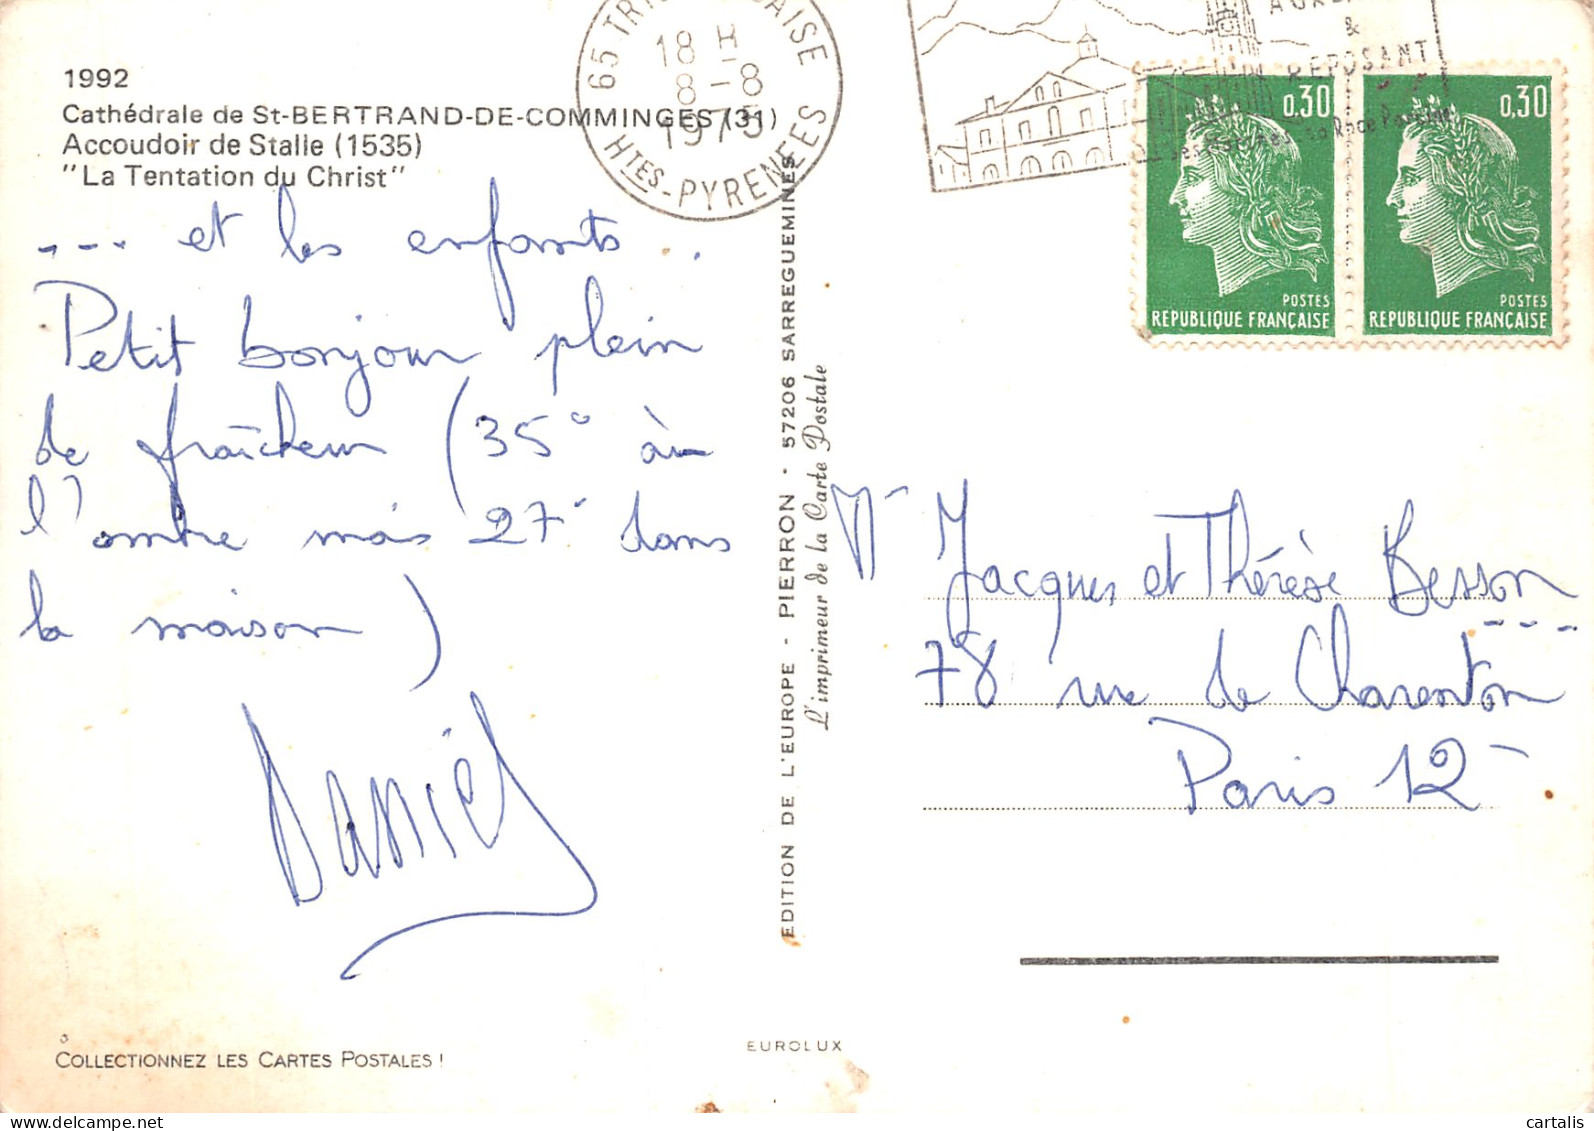 1992
Cathédrale de St-BERTRAND-DE-COMMINGES (31)
Accoudoir de Stalle (1535)
"La Tentation du Christ"
--- et les enfants.
Petit bonjour plein
de fraîcheur (35° à
l'ombre mais 27° dans
la maison)
Daniel
COLLECTIONNEZ LES CARTES POSTALES !
EDITION DE L'EUROPE - PIERRON - 57206 SARREGUEMINES
L'imprimeur de la Carte Postale
EUROLUX
65
18 H
8-8
1975
HTES-PYRENEES
&
REPOSANT
0,30
POSTES
REPUBLIQUE FRANÇAISE
0,30
POSTES
REPUBLIQUE FRANÇAISE
Jacques et Thérèse Besson
---
78 rue de Charenton
Paris 12
cartalis
delcampe.net